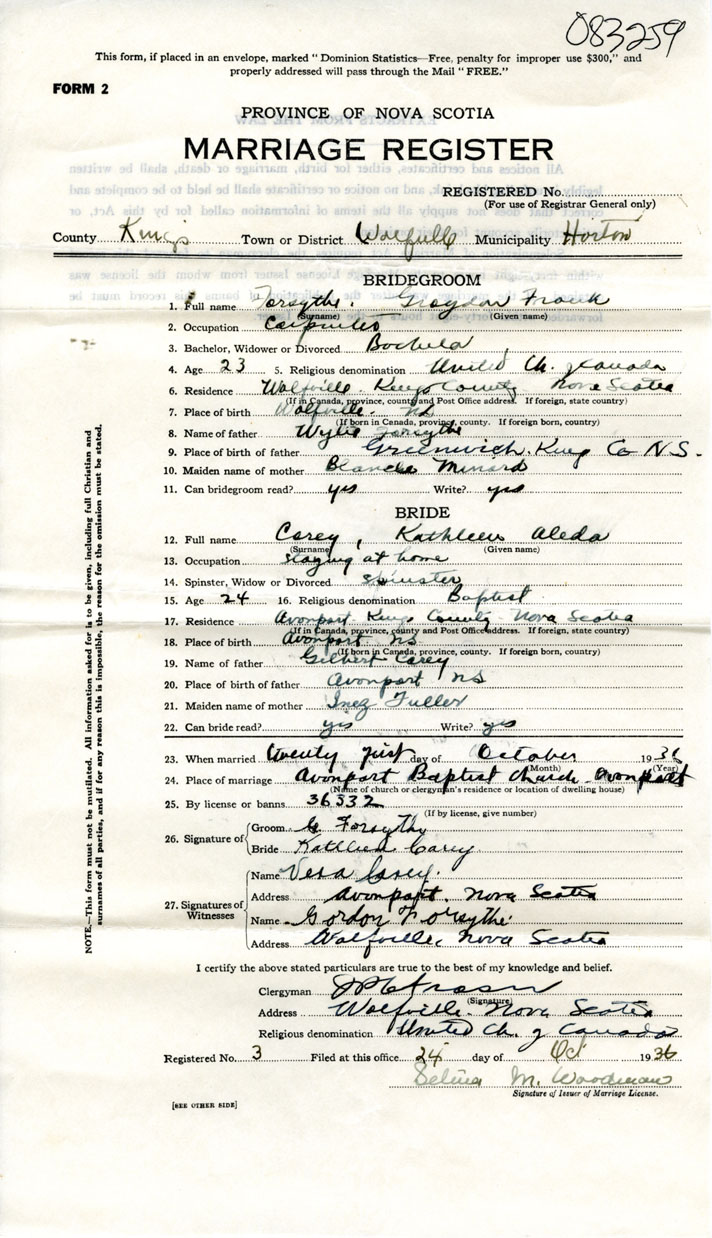 083259
This form, if placed in an envelope, marked "Dominion Statistics—Free, penalty for improper use $300," and
properly addressed will pass through the Mail "FREE."
FORM 2
PROVINCE OF NOVA SCOTIA
MARRIAGE REGISTER
REGISTERED No.
(For use of Registrar General only)
County Kings Town or District Wolfville Municipality Horton
BRIDEGROOM
1. Full name Forsythe. Graydon Frank
(Surname) (Given name)
2. Occupation Carpenter
3. Bachelor, Widower or Divorced Bachelor
4. Age 23 5. Religious denomination United Ch. of Canada
6. Residence Wolfville. Kings County Nova Scotia
(If in Canada, province, county and Post Office address. If foreign, state country)
7. Place of birth Wolfville. NS
(If born in Canada, province, county. If foreign born, country)
8. Name of father Wylie Forsythe
9. Place of birth of father Greenwich. Kings Co N.S.
10. Maiden name of mother Blanche Minard
11. Can bridegroom read? yes Write? yes
BRIDE
12. Full name Carey, Kathleen Aleda
(Surname) (Given name)
13. Occupation staying at home
14. Spinster, Widow or Divorced spinster
15. Age 24 16. Religious denomination Baptist
17. Residence Avonport Kings County Nova Scotia
(If in Canada, province, county and Post Office address. If foreign, state country)
18. Place of birth Avonport NS
(If born in Canada, province, county. If foreign born, country)
19. Name of father Gilbert Carey
20. Place of birth of father Avonport NS
21. Maiden name of mother Inez Fuller
22. Can bride read? yes Write? yes
23. When married twenty first day of October 1936
(Month) (Year)
24. Place of marriage Avonport Baptist Church Avonport
(Name of church or clergyman's residence or location of dwelling house)
25. By license or banns 36332
(If by license, give number)
26. Signature of
Groom G Forsythe
Bride Kathleen Carey
27. Signatures of Witnesses
Name Vera Carey.
Address Avonport, Nova Scotia
Name Gordon Forsythe
Address Wolfville, Nova Scotia
I certify the above stated particulars are true to the best of my knowledge and belief.
Clergyman
(Signature)
Address Wolfville. Nova Scotia
Religious denomination United Ch. of Canada
Registered No. 3 Filed at this office 24 day of Oct 1936
Selina M. Woodman
Signature of Issuer of Marriage License.
[SEE OTHER SIDE]
NOTE.—This form must not be mutilated. All information asked for is to be given, including full Christian and
surnames of all parties, and if for any reason this is impossible, the reason for the omission must be stated.